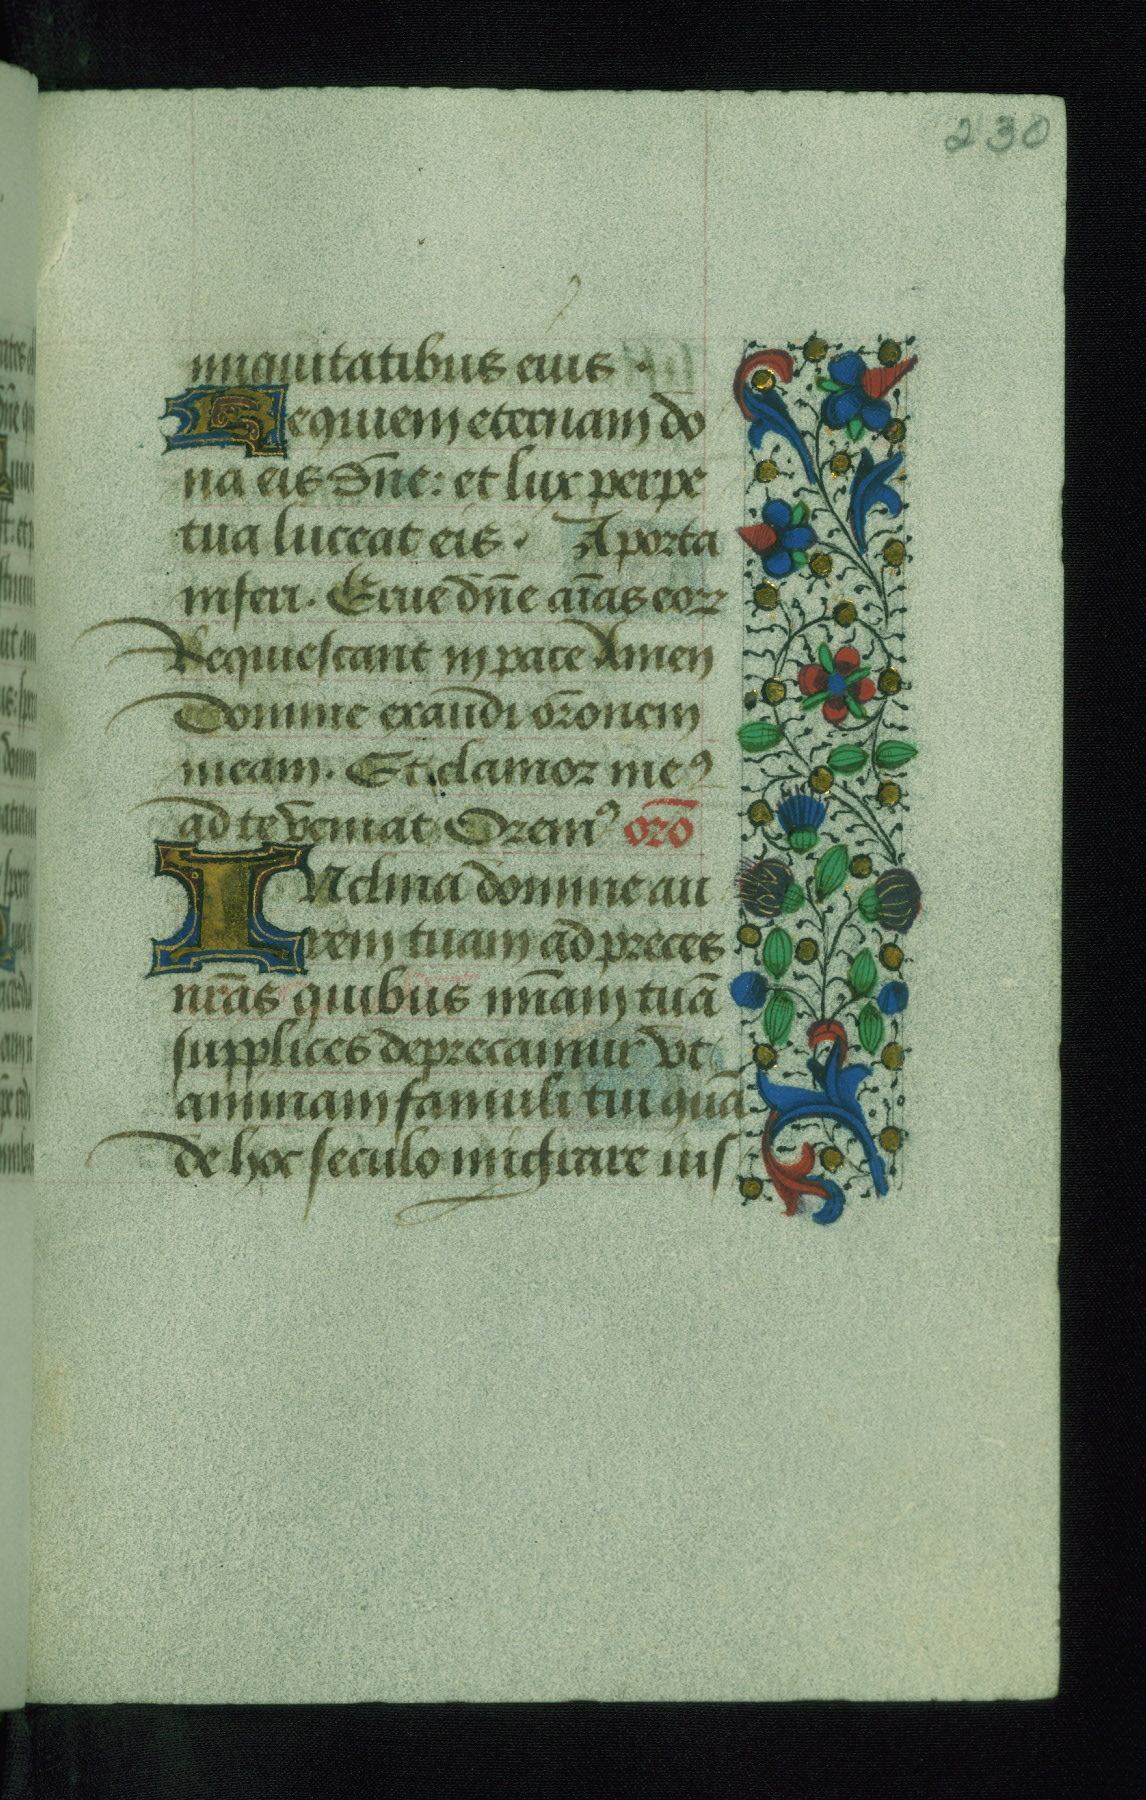 230
iniquitatibus eius .
Requiem eternam do
na eis dn̄e: et lux perpe
tua luceat eis . A porta
inferi . Erue dn̄e aīas eoꝝ
Requiescant in pace Amen
Domine exaudi orōnem
meam . Et clamor meꝰ
ad te veniat Oremꝰ orō
INclina domine au
rem tuam ad preces
nrās quibus mīam tuā
supplices deprecamur vt
animam famuli tui quā
de hoc seculo migrare ius